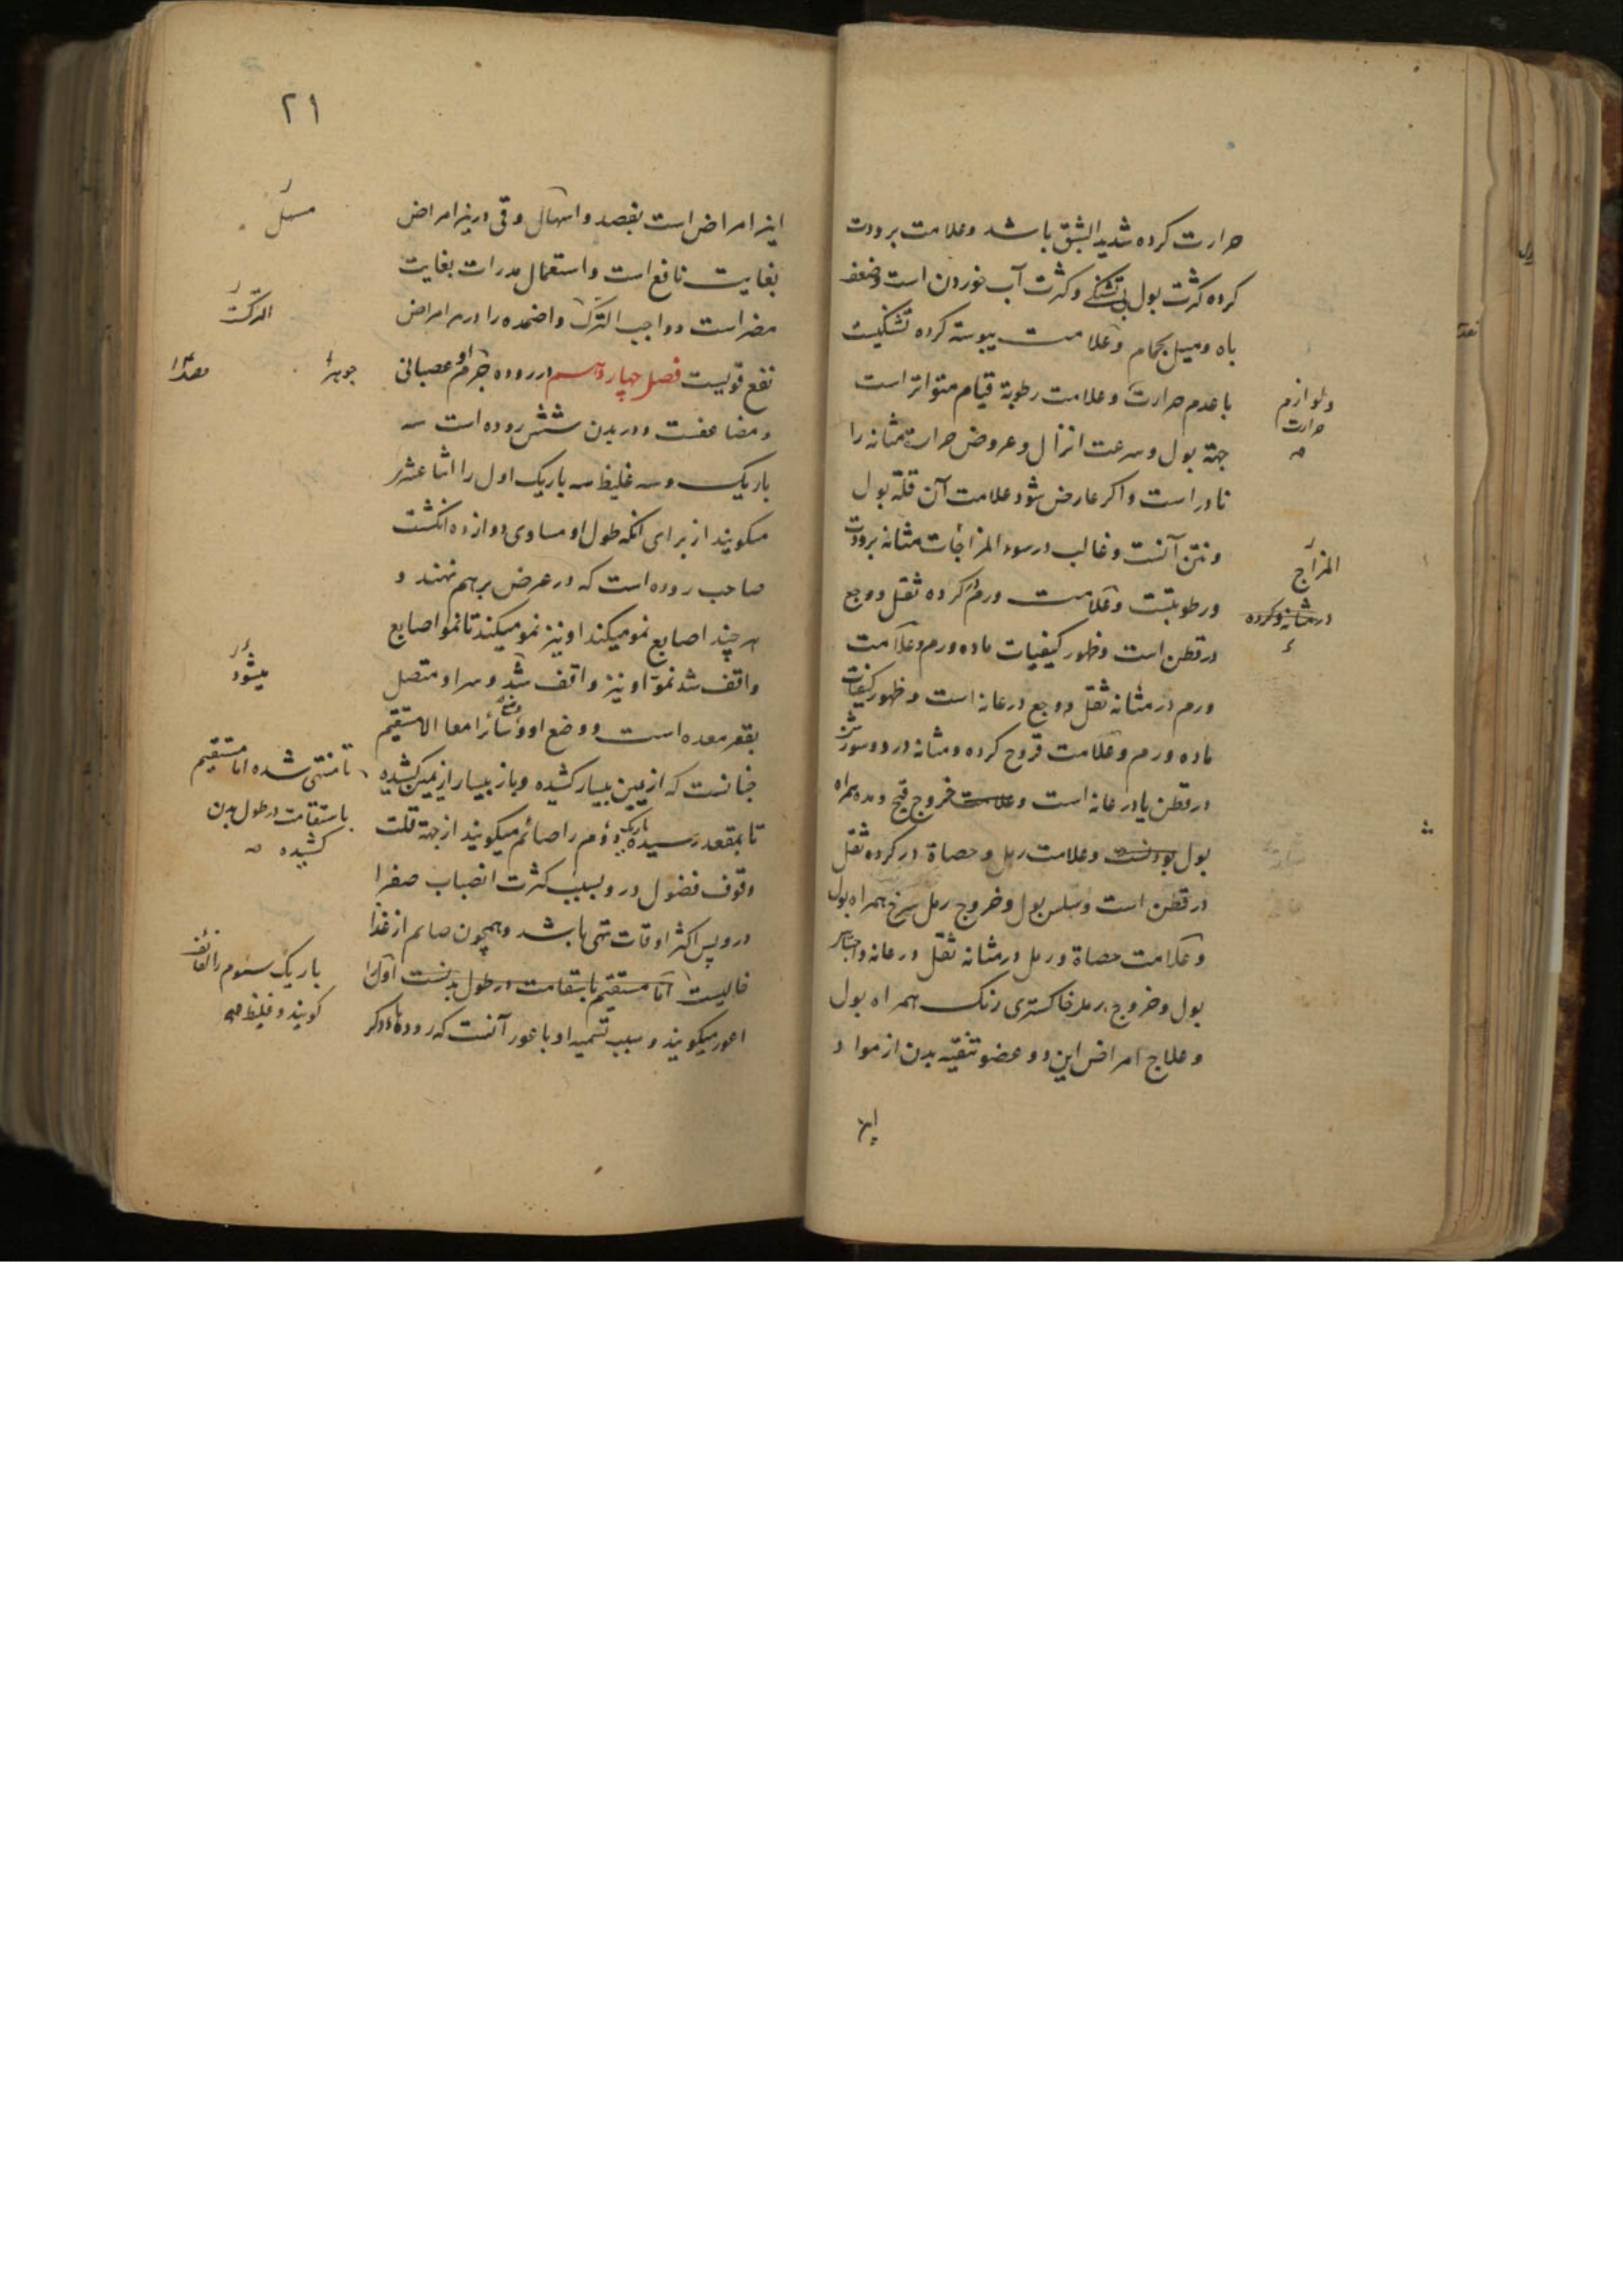 حرارت کرده شدید الشبق باشد وعلامت برودت
کرده کثرت بول بی تشنکی وکثرت آب خوردن است وضعف
باه ومیل بحمام وعلامت یبوسة کرده تشنکیست
با عدم حرارت وعلامت رطوبة قیام متواتر است
جهة بول وسرعت انزال وعروض حرارت مثانه را
نادر است واکر عارض شود علامت آن قلة بول
ونتن آنست وغالب در سوء المزاجات مثانه برودت
ورطوبتست وعلامت ورم کرده ثقل ووجع
در قطن است وظهور کیفیات ماده ورم وعلامت
ورم در مثانه ثقل ووجع در عانه است وظهور کیفیات
ماده ورم وعلامت قروح کرده ومثانه درد وسوزش
در قطن یا در عانه است وعلامت خروج قیح ومده همراه
بول بودنست وعلامت رمل وحصاة در کرده ثقل
در قطن است وسلس بول وخروج رمل سرخ همراه بول
وعلامت حصاة ورمل در مثانه ثقل در عانه واحتباس
بول وخروج رمل خاکستری رنک همراه بول
وعلاج امراض این دو عضو تنقیه بدن از مواد
ولوازم
حرارت
المزاج
در مثانه وکرده
۲۱
این امراض است بفصد واسهال وقی درین امراض
بغایت نافع است واستعمال مدرات بغایت
مضر است وواجب الترک واضمده را در هر امراض
نفع قویست فصل چهاردهم در روده جرم او عصبانی
ومضاعفست ودر بدن شش روده است سه
باریک وسه غلیظ سه باریک اول را اثنا عشر
میکویند از برای انکه طول او مساوی دوازده انکشت
صاحب روده است که در عرض برهم نهند و
هر چند اصابع نمو میکند او نیز نمو میکند تا نمو اصابع
واقف شد نمو او نیز واقف شد وسر او متصل
بقعر معده است ووضع او وسائر امعا الا مستقیم
چنانست که از یمین بیسار کشیده وباز بیسار از یمین کشیده
تا بمقعد رسیده باریک دوم را صائم میکویند از جهة قلت
وقوف فضول درو بسبب کثرت انصباب صفرا
درو پس اکثر اوقات تهی باشد وهمچون صایم از غذا
خالیست اما مستقیم باستقامت در طول بدنست اول را
اعور میکویند وسبب تسمیه او باعور آنست که روده
مسهل
الترک
جوهر
میشود
تا منتهی شده اما مستقیم
باستقامت در طول بدن
کشیده
باریک سئوم را لفائف
کویند وغلیظ